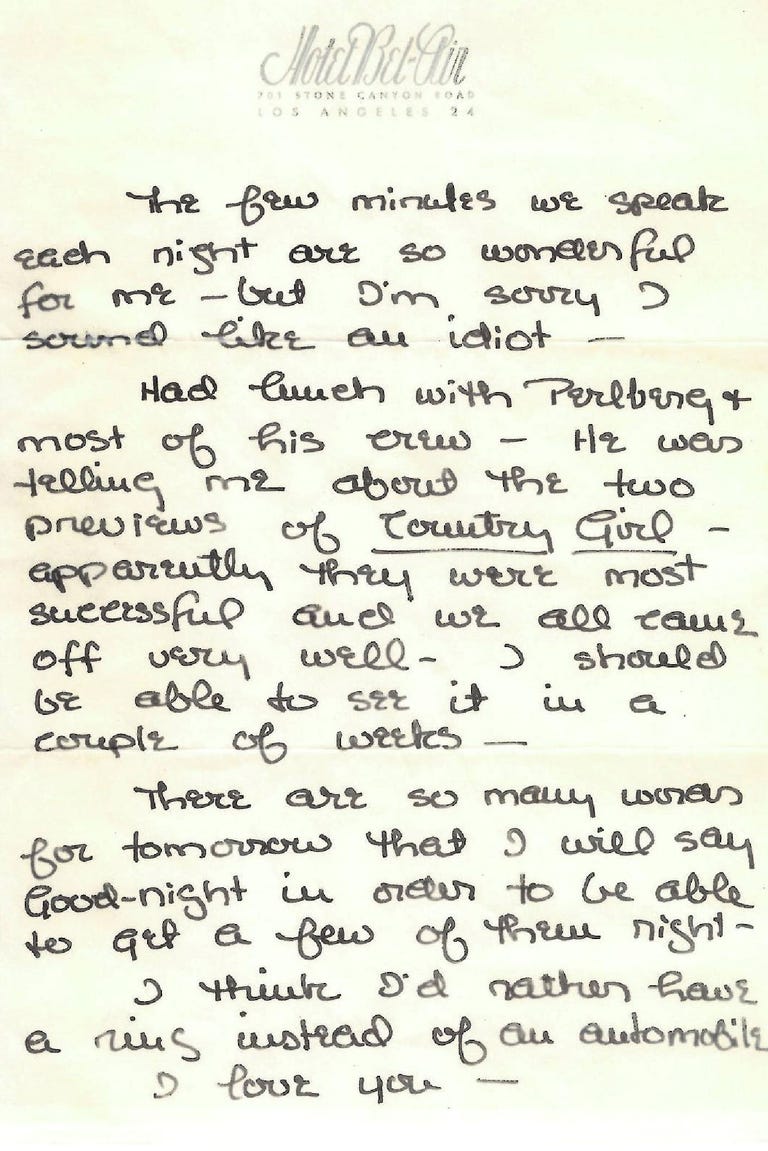 Hotel Bel-Air
701 STONE CANYON ROAD
LOS ANGELES 24
The few minutes we speak
each night are so wonderful
for me – but I'm sorry I
sound like an idiot –
Had lunch with Perlberg +
most of his crew – He was
telling me about the two
previews of Country Girl –
apparently they were most
successful and we all came
off very well – I should
be able to see it in a
couple of weeks –
There are so many words
for tomorrow that I will say
Good-night in order to be able
to get a few of them right –
I think I'd rather have
a ring instead of an automobile
I love you –